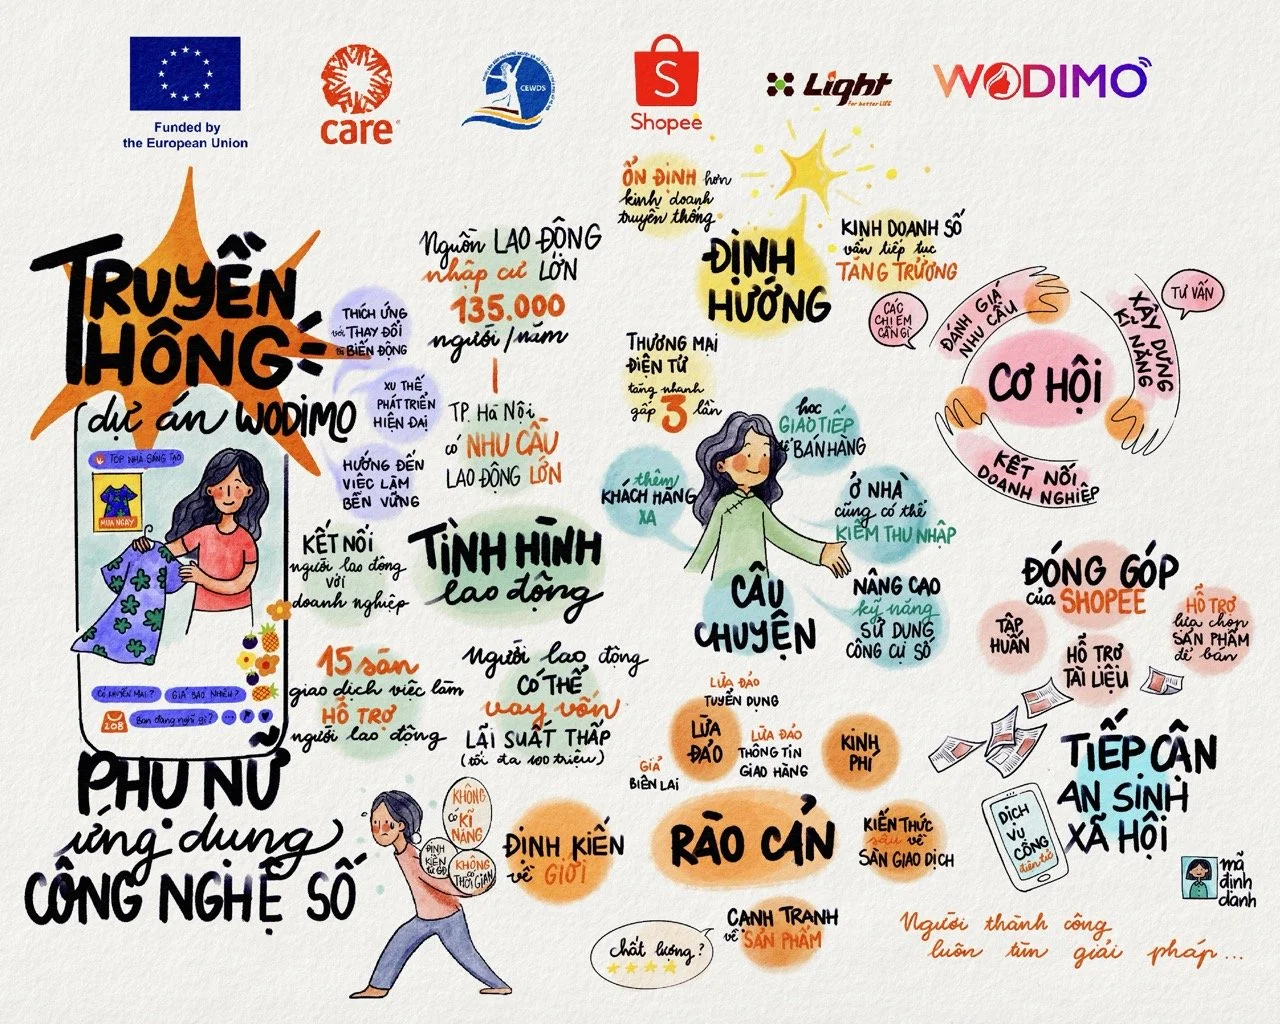 Funded by
the European Union
care
CEWDS
S
Shopee
Light
for better LIFE
WODIMO
TRUYỀN
THÔNG
dự án WODIMO
TOP NHÀ SÁNG TẠO
MUA NGAY
CÓ KHUYẾN MẠI?
GIÁ BAO NHIÊU?
20B
Bạn đang nghĩ gì?
PHỤ NỮ
ứng dụng
CÔNG NGHỆ SỐ
THÍCH ỨNG
với THAY ĐỔI
và BIẾN ĐỘNG
XU THẾ
PHÁT TRIỂN
HIỆN ĐẠI
HƯỚNG ĐẾN
VIỆC LÀM
BỀN VỮNG
Nguồn LAO ĐỘNG
nhập cư LỚN
135.000
người/năm
TP. Hà Nội
có NHU CẦU
LAO ĐỘNG LỚN
TÌNH HÌNH
lao động
KẾT NỐI
người lao động
VỚI
doanh nghiệp
15 sàn
giao dịch việc làm
HỖ TRỢ
người lao động
Người lao động
CÓ THỂ
vay vốn
LÃI SUẤT THẤP
(tối đa 100 triệu)
ỔN ĐỊNH hơn
kinh doanh
truyền thống
ĐỊNH
HƯỚNG
KINH DOANH SỐ
vẫn tiếp tục
TĂNG TRƯỞNG
THƯƠNG MẠI
ĐIỆN TỬ
tăng nhanh
gấp 3 lần
học
GIAO TIẾP
để BÁN HÀNG
thêm
KHÁCH HÀNG
XA
Ở NHÀ
cũng có thể
KIẾM THU NHẬP
CÂU
CHUYỆN
NÂNG CAO
kỹ năng
SỬ DỤNG
CÔNG CỤ SỐ
CÁC
CHỊ EM
CẦN GÌ
ĐÁNH GIÁ
NHU CẦU
TƯ VẤN
XÂY DỰNG
KĨ NĂNG
CƠ HỘI
KẾT NỐI
DOANH NGHIỆP
ĐÓNG GÓP
của SHOPEE
TẬP
HUẤN
HỖ TRỢ
TÀI LIỆU
HỖ TRỢ
lựa chọn
SẢN PHẨM
để bán
TIẾP CẬN
AN SINH
XÃ HỘI
DỊCH
VỤ
CÔNG
điện tử
mã
định
danh
LỪA ĐẢO
TUYỂN DỤNG
LỪA
ĐẢO
LỪA ĐẢO
THÔNG TIN
GIAO HÀNG
GIẢ
BIÊN LAI
KINH
PHÍ
RÀO CẢN
KIẾN THỨC
sâu về
SÀN GIAO DỊCH
ĐỊNH KIẾN
về GIỚI
KHÔNG
có KĨ
NĂNG
ĐỊNH
KIẾN
từ GĐ
KHÔNG
CÓ
THỜI GIAN
CẠNH TRANH
về SẢN PHẨM
chất lượng?
Người thành công
luôn tìm giải pháp...